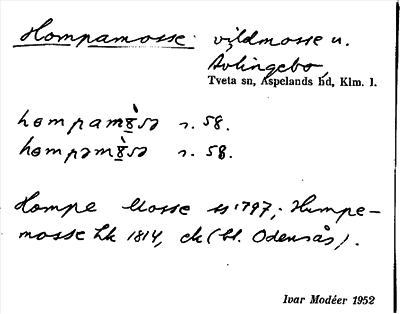 Hompamosse: vildmosse u.
Avlingebo,
Tveta sn, Aspelands hd, Klm. l.
hompamò̱sə r. 58.
hompəmò̱sə r. 58.
Hompe Mosse 1797; Humpe-
mosse hk 1814, ek (bl. Odensås).
Ivar Modéer 1952